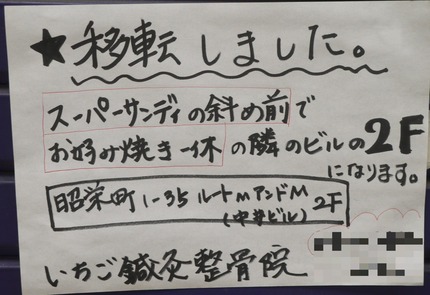 ★移転しました。
スーパーサンディの斜め前で
お好み焼き一休の隣のビルの2F
になります。
昭栄町1-35 ルートMアンドM 2F
(中井ビル)
いちご鍼灸整骨院